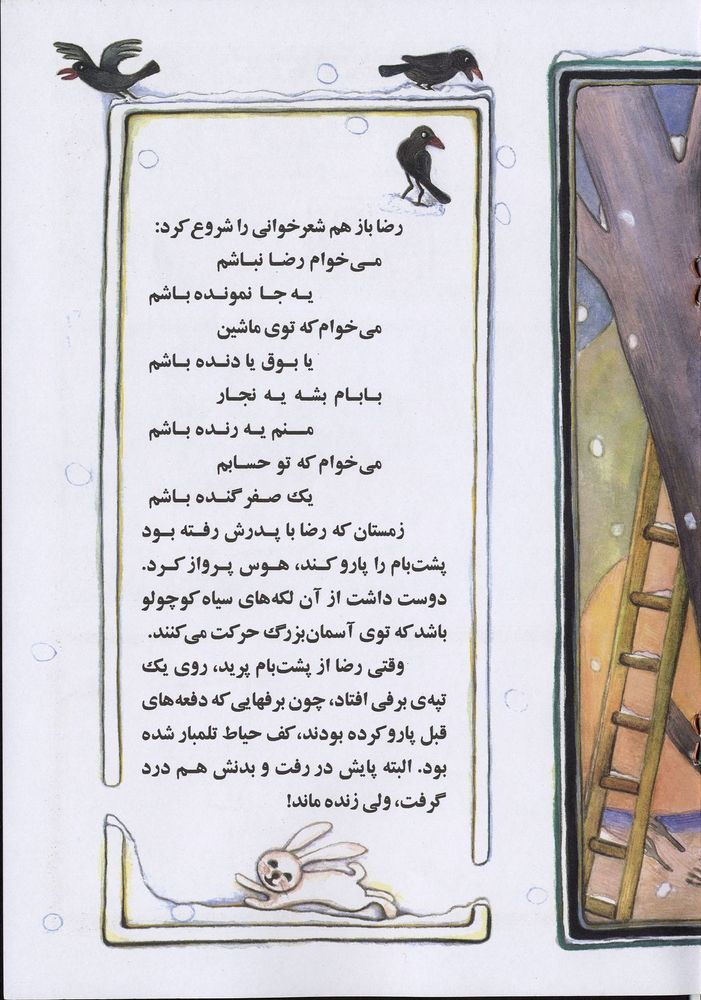 رضا باز هم شعرخوانی را شروع کرد:
می‌خوام رضا نباشم
یه جا نمونده باشم
می‌خوام که توی ماشین
یا بوق یا دنده باشم
بابام بشه یه نجار
منم یه رنده باشم
می‌خوام که تو حسابم
یک صفر گنده باشم
زمستان که رضا با پدرش رفته بود
پشت‌بام را پارو کند، هوس پرواز کرد.
دوست داشت از آن لکه‌های سیاه کوچولو
باشد که توی آسمان بزرگ حرکت می‌کنند.
وقتی رضا از پشت‌بام پرید، روی یک
تپه‌ی برفی افتاد، چون برفهایی که دفعه‌های
قبل پارو کرده بودند، کف حیاط تلمبار شده
بود. البته پایش در رفت و بدنش هم درد
گرفت، ولی زنده ماند!